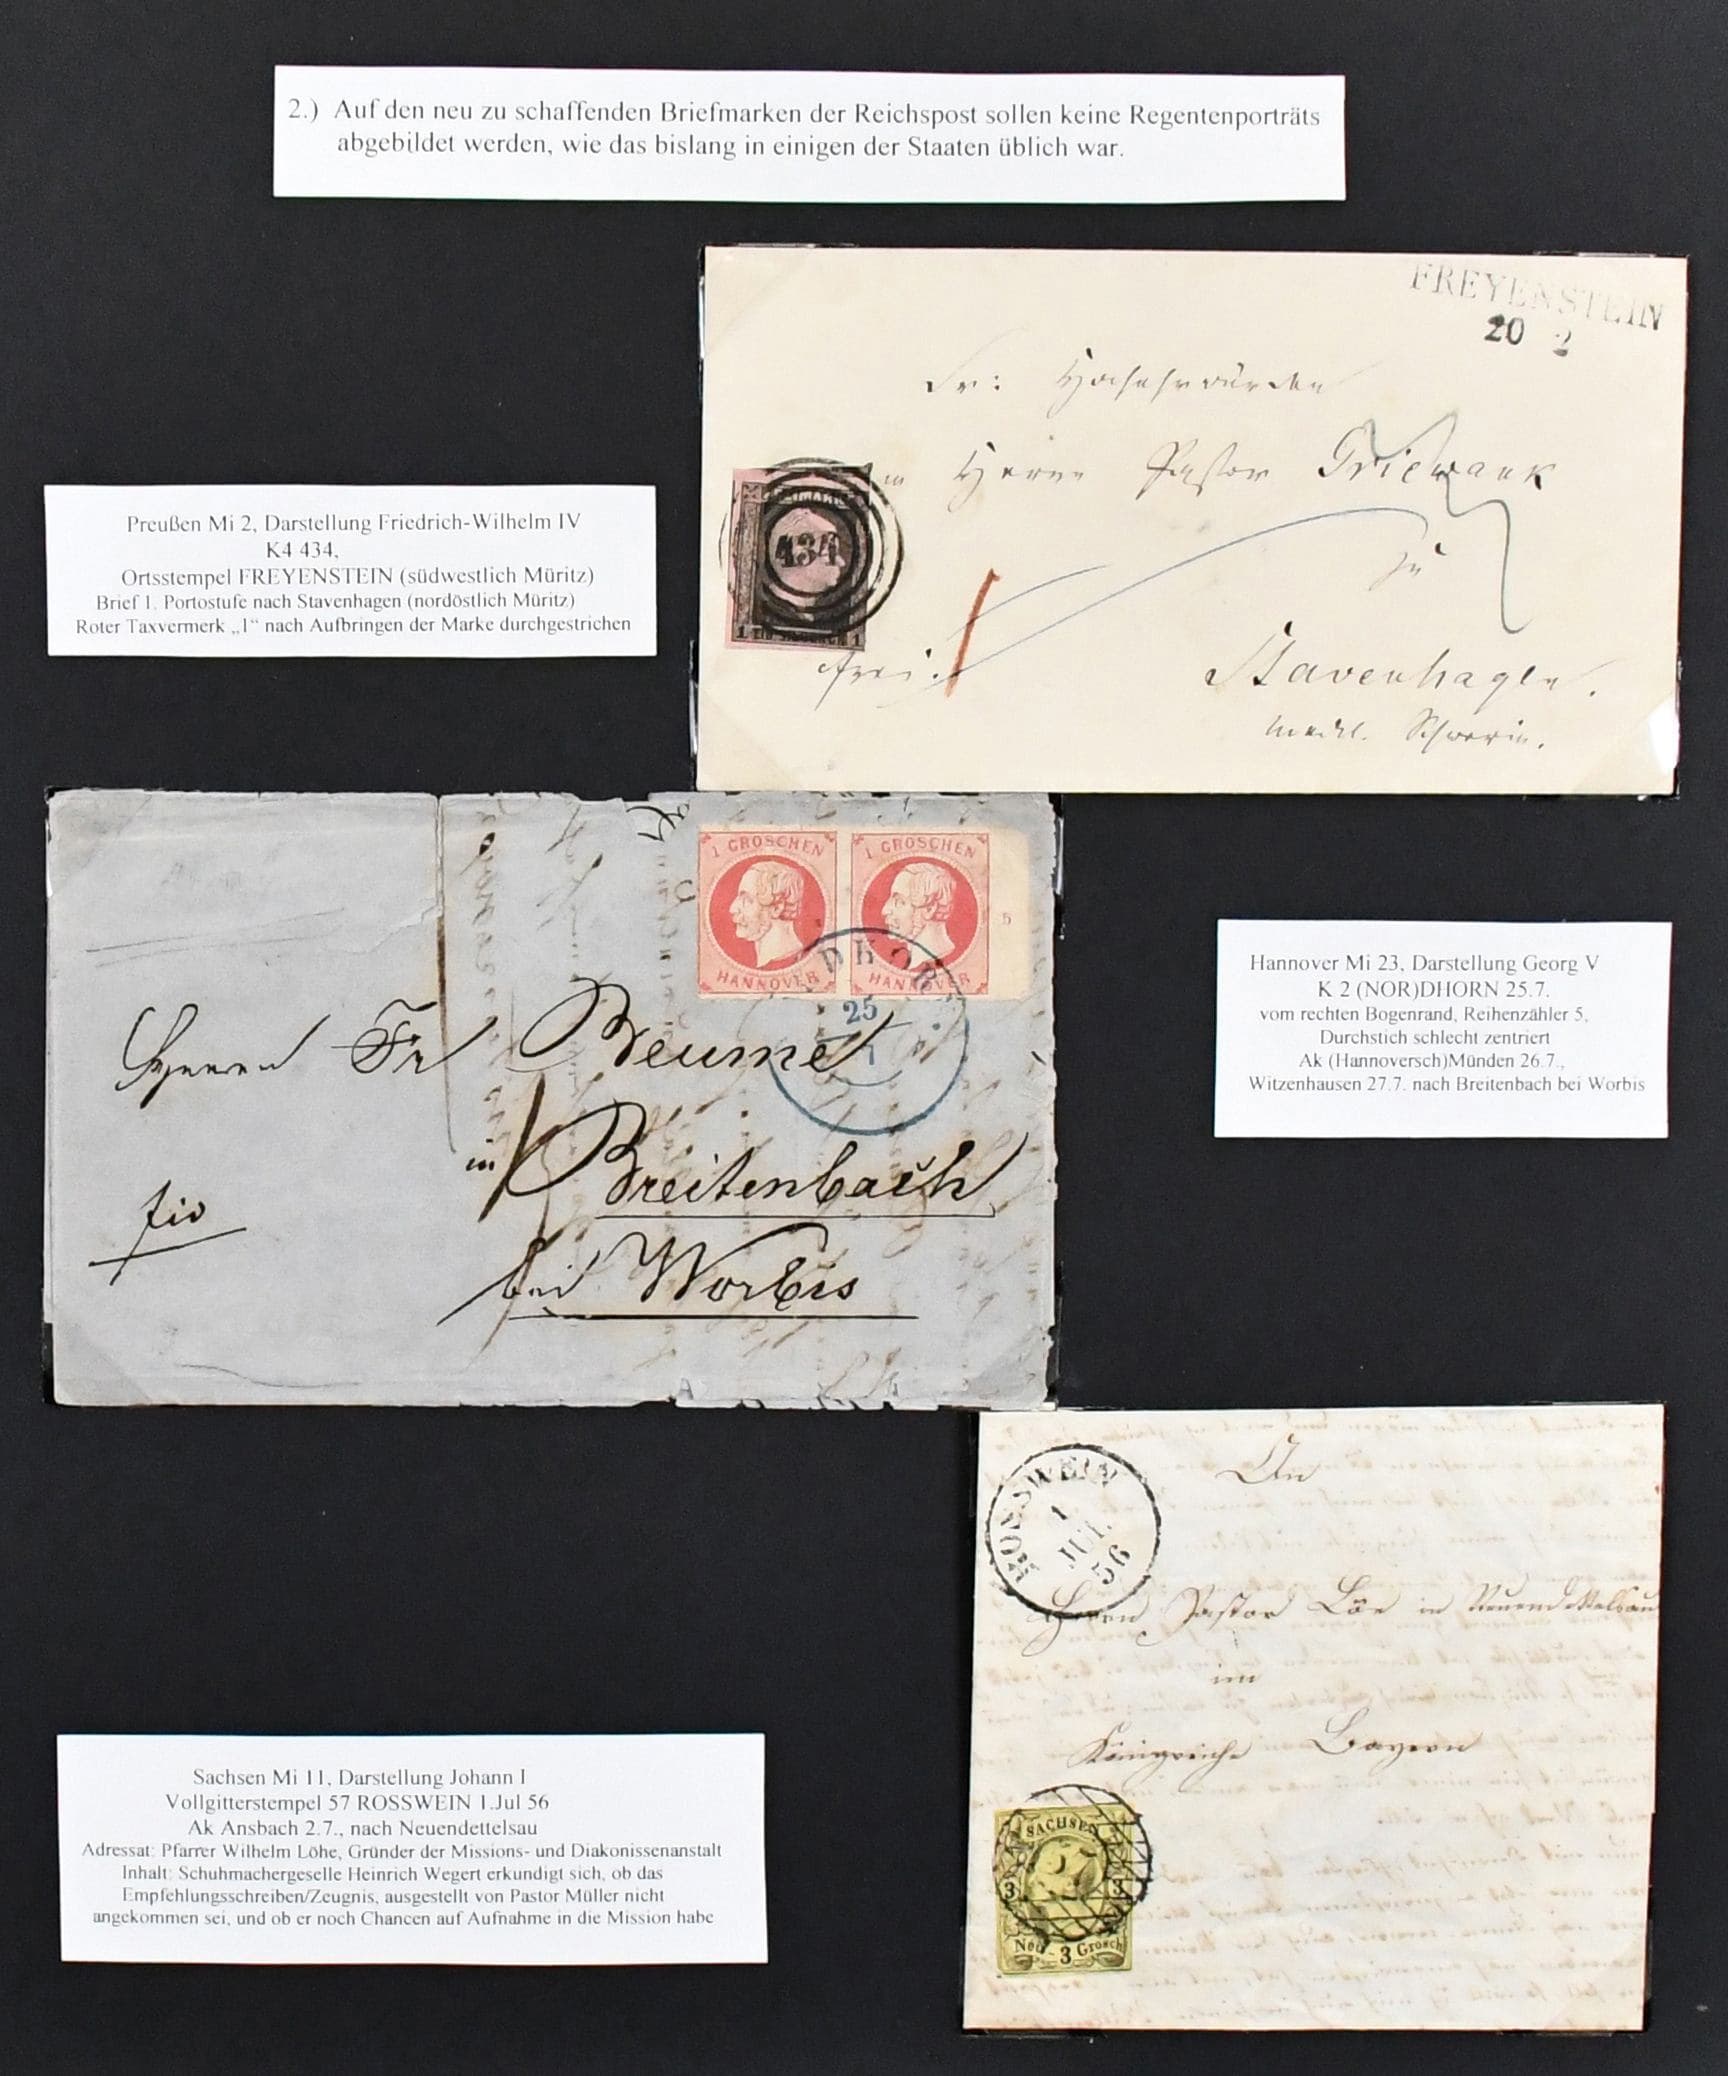 2.) Auf den neu zu schaffenden Briefmarken der Reichspost sollen keine Regentenporträts
abgebildet werden, wie das bislang in einigen der Staaten üblich war.
FREYENSTEIN
20 2
Sr: Hochehrwürden
Herrn Pastor Griewank
zu
Stavenhagen.
Meckl. Schwerin.
frei.
434
1 1
Preußen Mi 2, Darstellung Friedrich-Wilhelm IV
K4 434,
Ortsstempel FREYENSTEIN (südwestlich Müritz)
Brief 1. Portostufe nach Stavenhagen (nordöstlich Müritz)
Roter Taxvermerk „1“ nach Aufbringen der Marke durchgestrichen
1 GROSCHEN
HANNOVER
1 GROSCHEN
HANNOVER
5
DHOR
25
7
Herrn Fr Beume
in Breitenbach
bei Worbis
Hannover Mi 23, Darstellung Georg V
K 2 (NOR)DHORN 25.7.
vom rechten Bogenrand, Reihenzähler 5,
Durchstich schlecht zentriert
Ak (Hannoversch)Münden 26.7.,
Witzenhausen 27.7. nach Breitenbach bei Worbis
ROSSWEIN
1
JUL
56
An
Herrn Pastor Löe in Neuendettelsau
im
Königreiche Bayern
SACHSEN
3 3
Neu - 3 Grosch
Sachsen Mi 11, Darstellung Johann I
Vollgitterstempel 57 ROSSWEIN 1.Jul 56
Ak Ansbach 2.7., nach Neuendettelsau
Adressat: Pfarrer Wilhelm Löhe, Gründer der Missions- und Diakonissenanstalt
Inhalt: Schuhmachergeselle Heinrich Wegert erkundigt sich, ob das
Empfehlungsschreiben/Zeugnis, ausgestellt von Pastor Müller nicht
angekommen sei, und ob er noch Chancen auf Aufnahme in die Mission habe